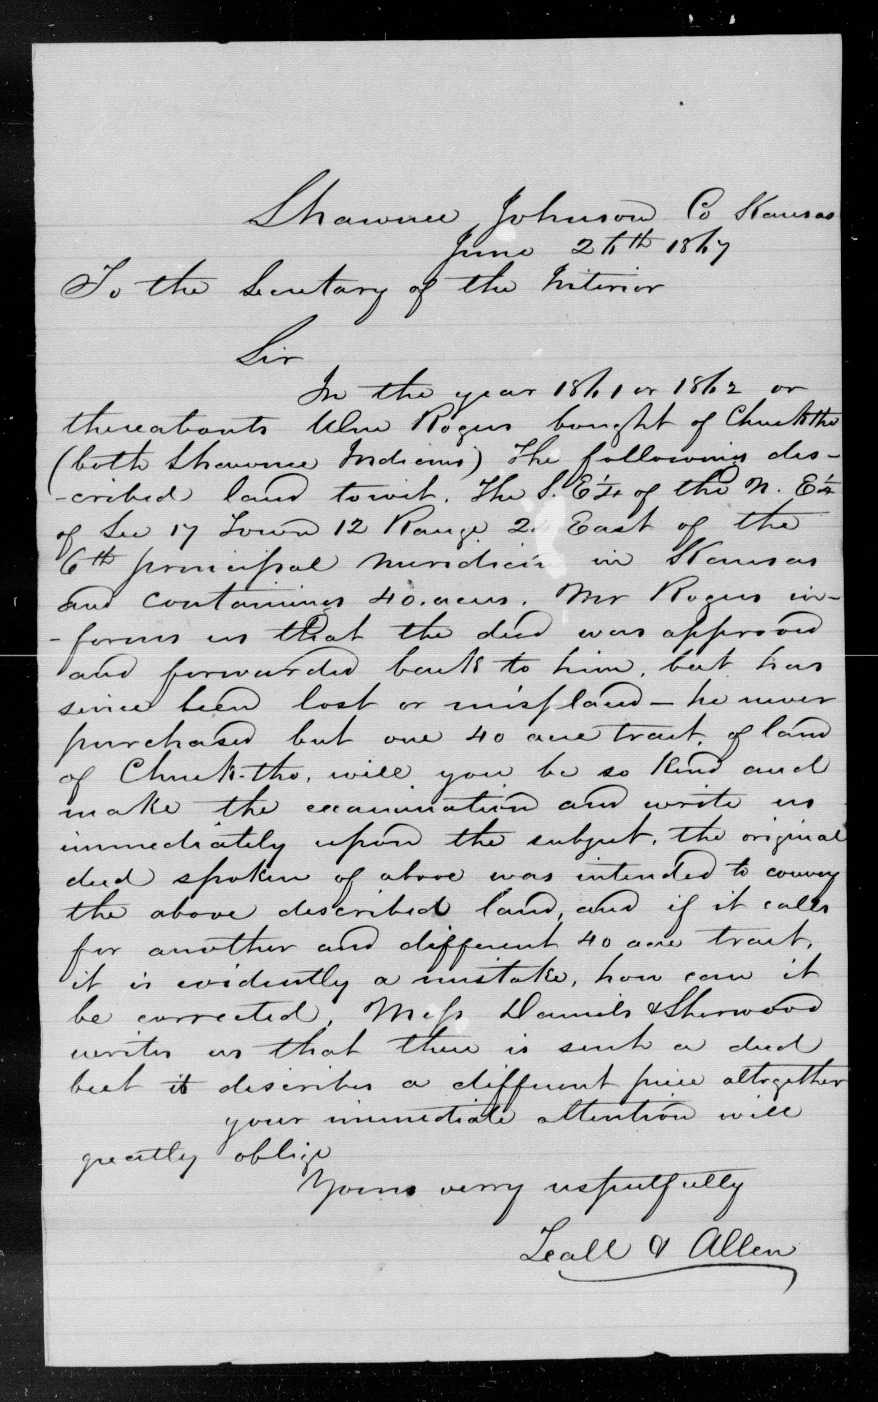 Shawnee Johnson Co Kansas
June 26th 1867
To the Secretary of the Interior
Sir
In the year 1861 or 1862 or
thereabouts Wm Rogers bought of Chuck-tho
(both Shawnee Indians) The following des-
-cribed land towit. The S. E ¼ of the N. E ¼
of Sec 17 Town 12 Range 24 East of the
6th principal Meridian in Kansas
and containing 40. acres. Mr Rogers in-
-forms us that the deed was approved
and forwarded back to him, but has
since been lost or misplaced — he never
purchased but one 40 acre tract, of land
of Chuck-tho, will you be so kind and
make the examination and write us
immediately upon the subject, the original
deed spoken of above was intended to convey
the above described land, and if it calls
for another and different 40 acre tract,
it is evidently a mistake, how can it
be corrected, Mess Daniels & Sherwood
writes us that there is sent a deed
but it describes a different piece altogether
your immediate attention will
greatly oblige
Yours verry respectfully
Leall & Allen